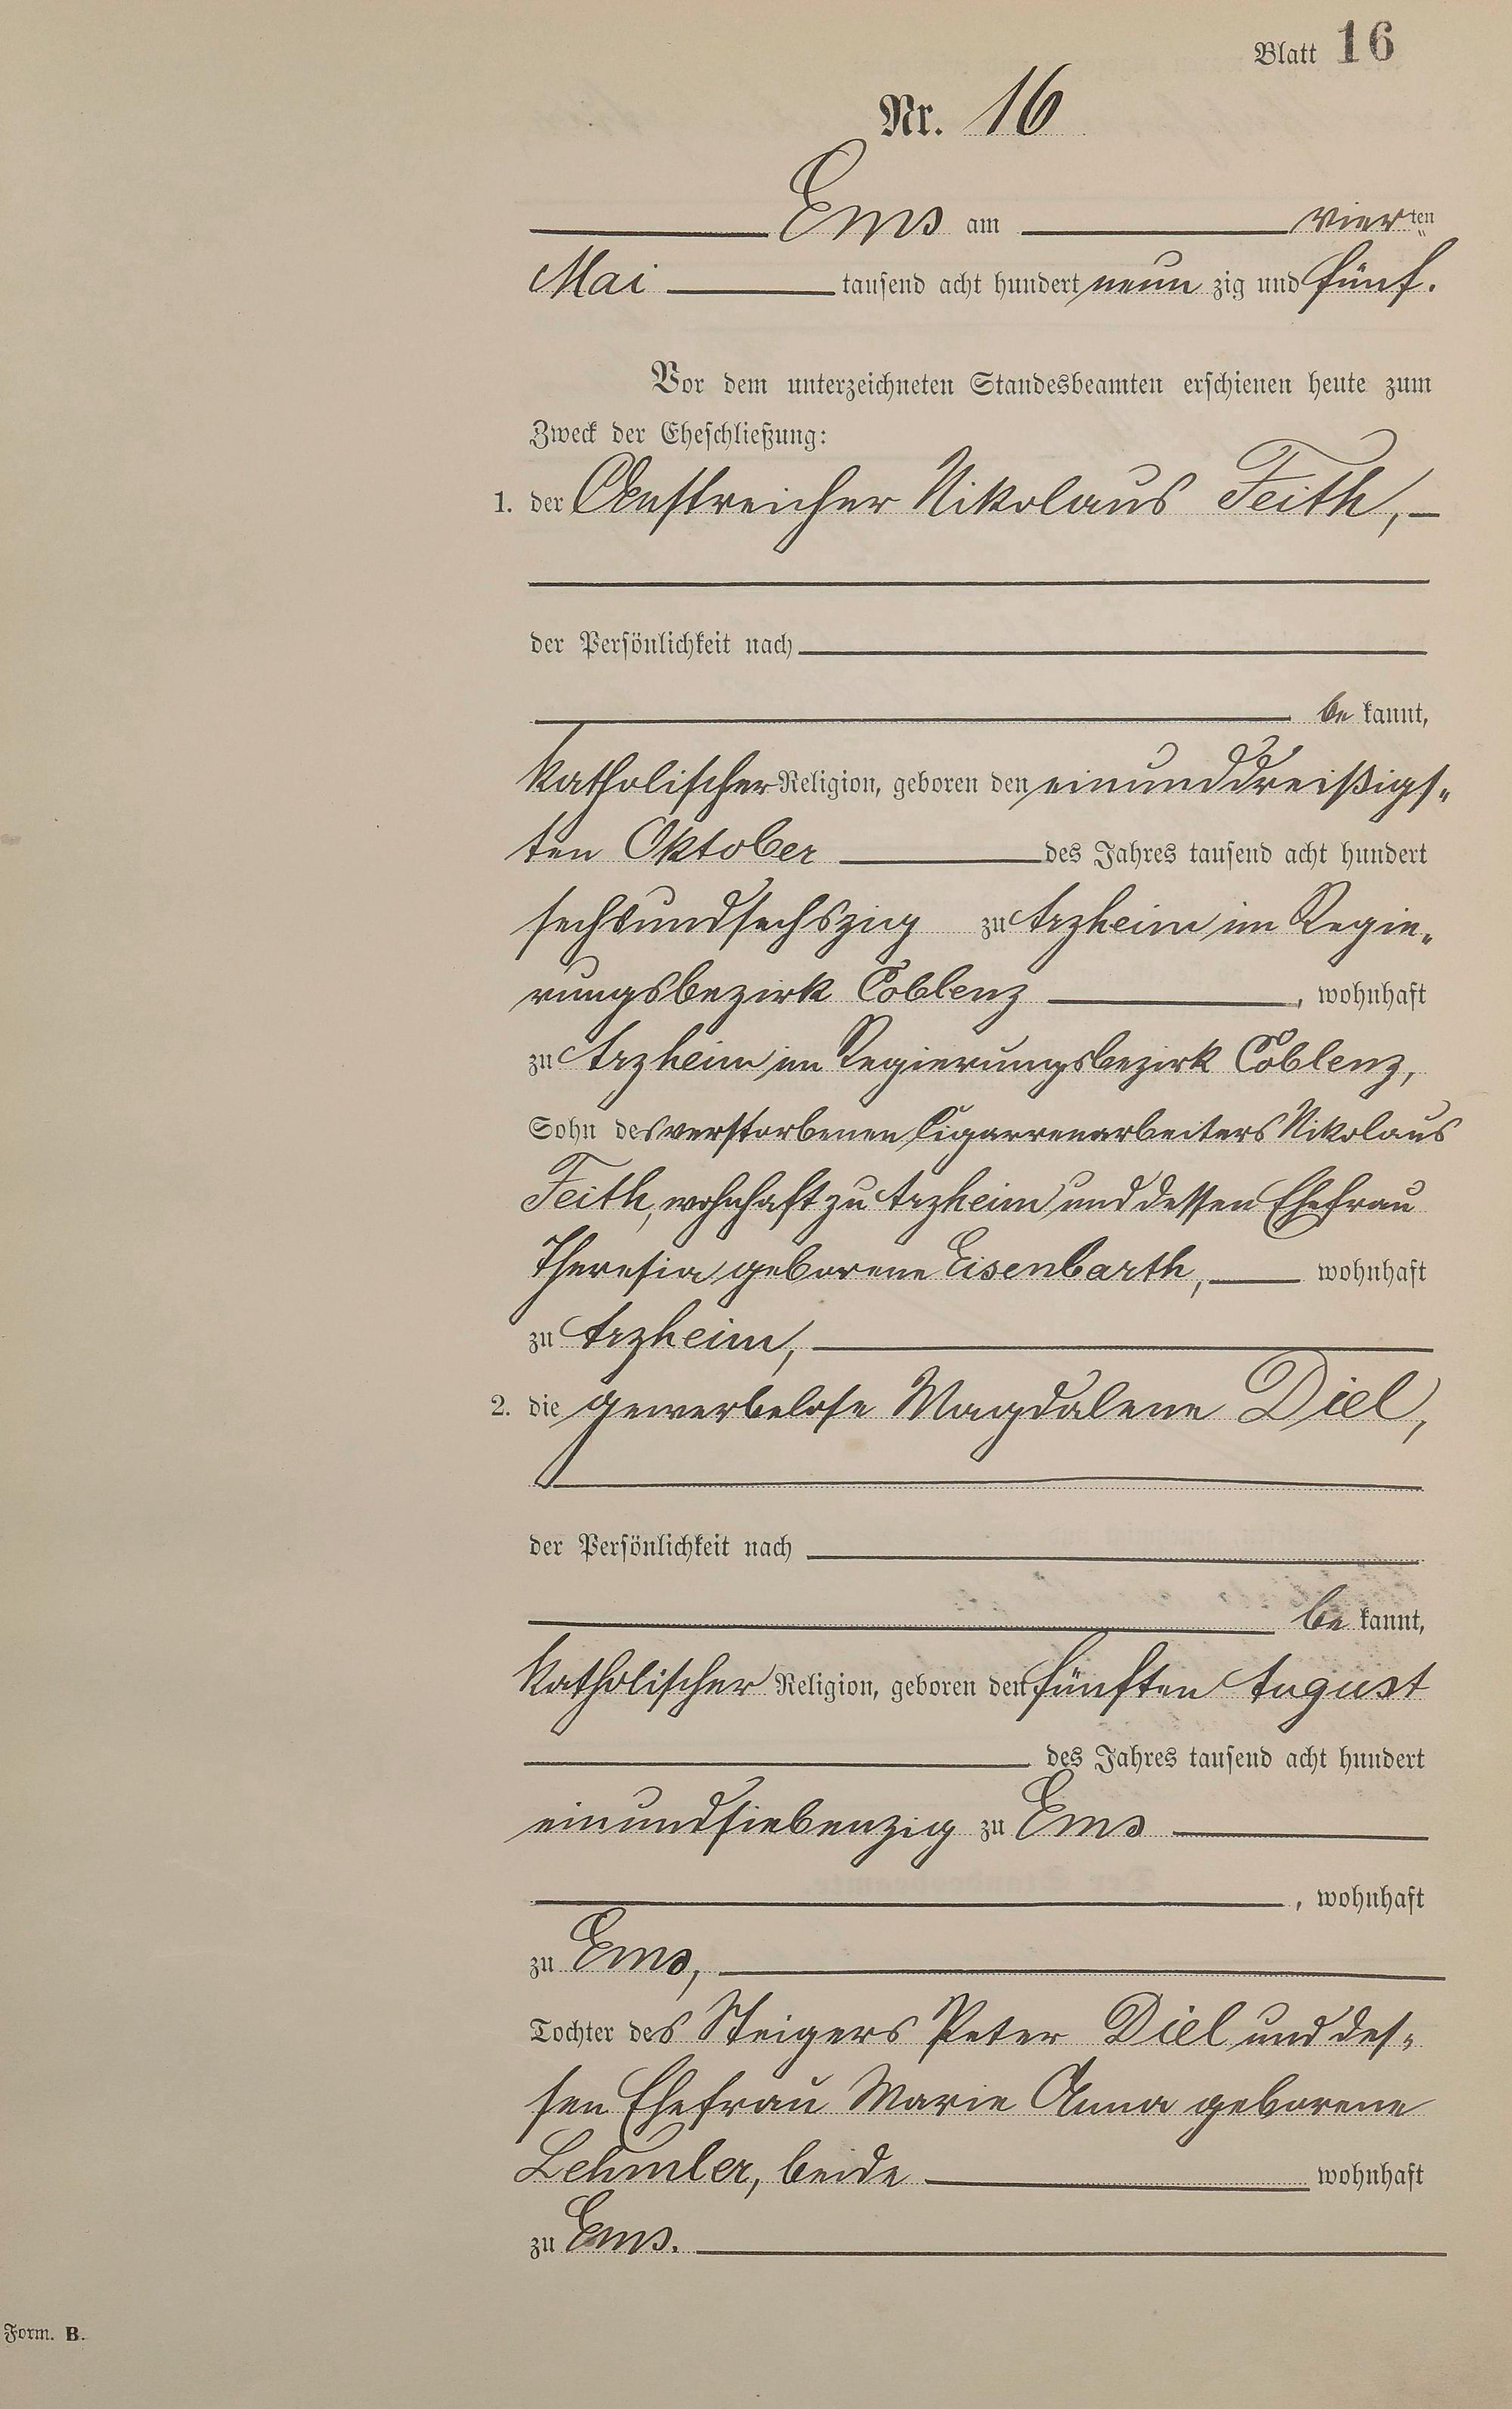 Blatt 16
Nr. 16
Ems am vierten
Mai tausend acht hundert neun zig und fünf.
Vor dem unterzeichneten Standesbeamten erschienen heute zum
Zweck der Eheschließung:
1. der Anstreicher Nikolaus Feith,
der Persönlichkeit nach
be kannt,
katholischer Religion, geboren den einunddreißigs„
ten Oktober des Jahres tausend acht hundert
sechsundsechszig zu Arzheim im Regie„
rungsbezirk Coblenz, wohnhaft
zu Arzheim im Regierungsbezirk Coblenz,
Sohn des verstorbenen Cigarrenarbeiters Nikolaus
Feith, wohnhaft zu Arzheim und dessen Ehefrau
Theresia geborene Eisenbarth, wohnhaft
zu Arzheim,
2. die gewerbelose Magdalene Diel,
der Persönlichkeit nach
be kannt,
katholischer Religion, geboren den fünften August
des Jahres tausend acht hundert
einundsiebenzig zu Ems
, wohnhaft
zu Ems,
Tochter des Steigers Peter Diel und des„
sen Ehefrau Marie Anna geborene
Lehmler, beide wohnhaft
zu Ems.
Form. B.